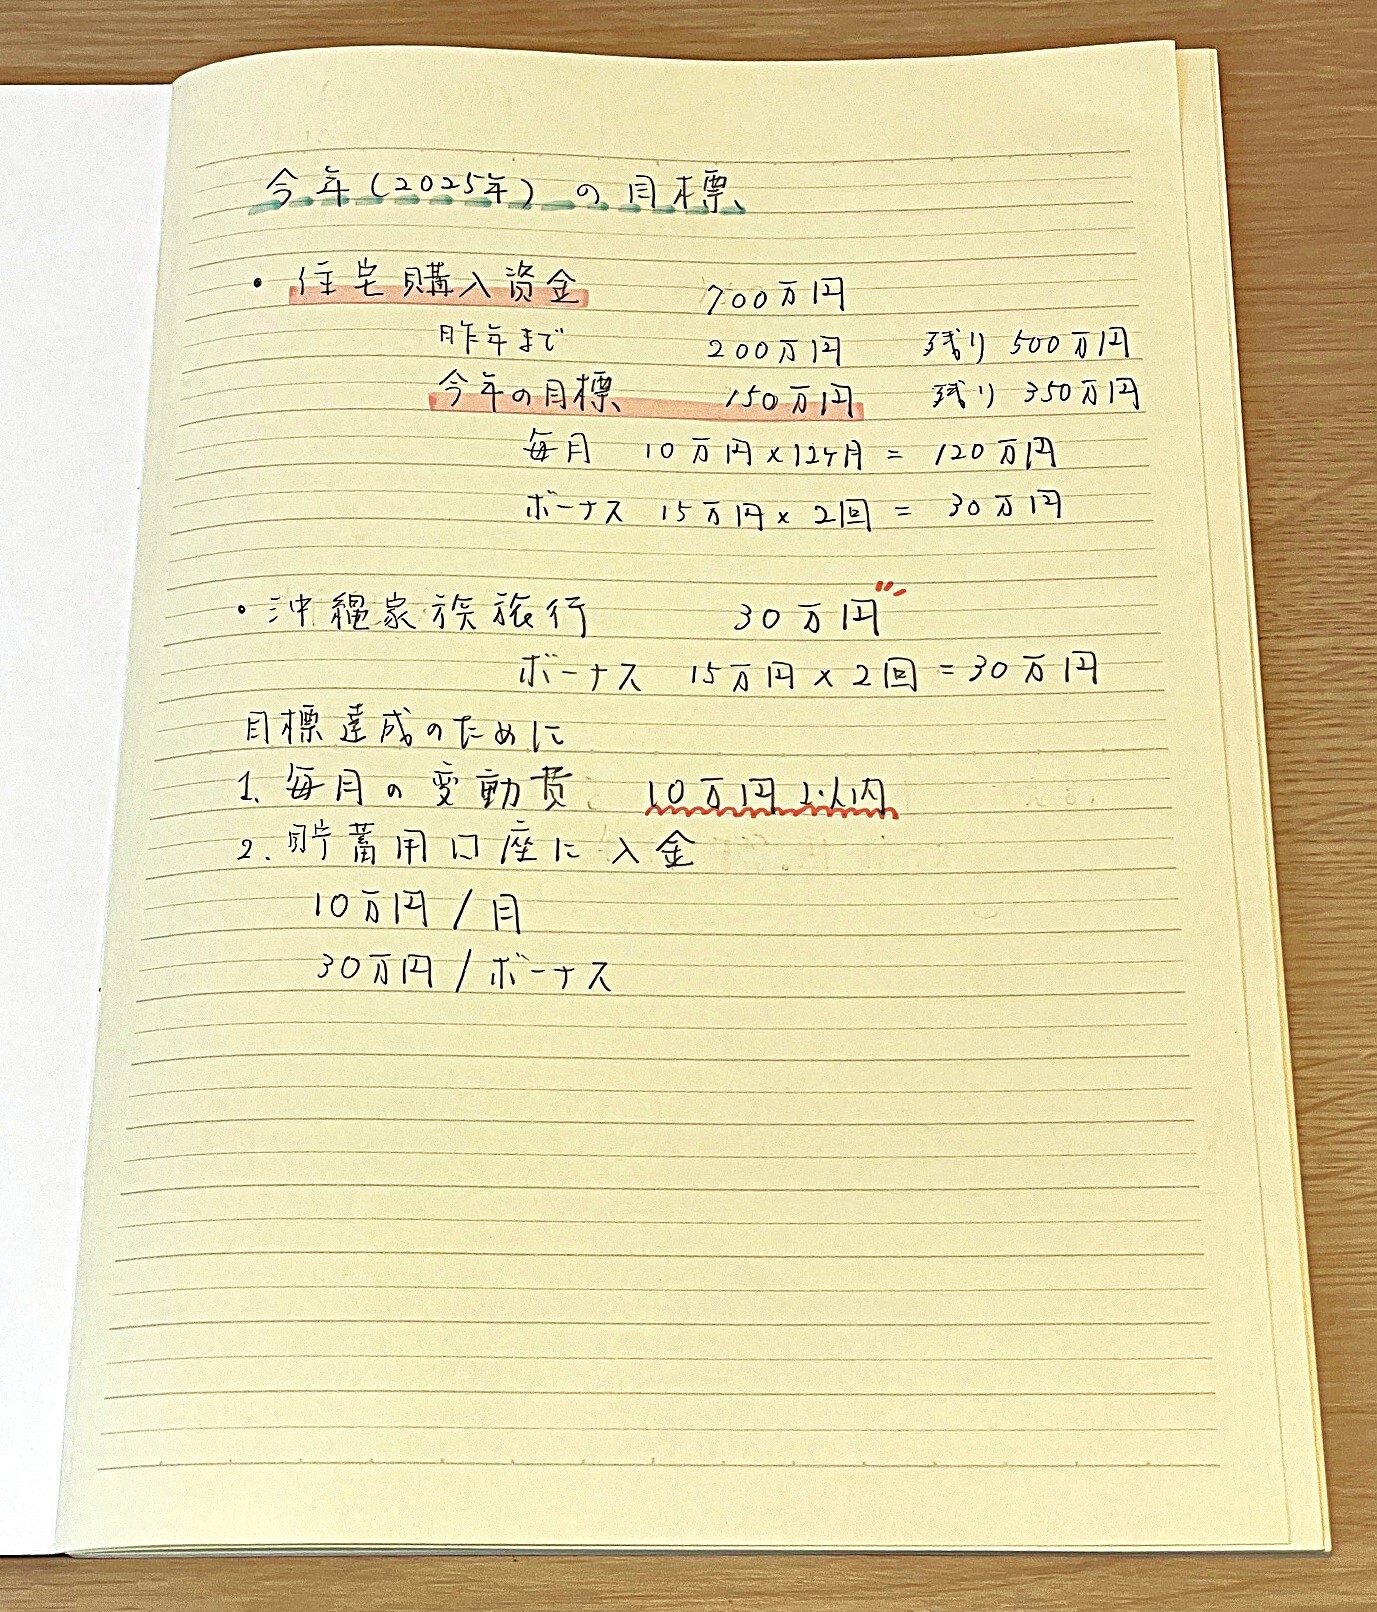 今年(2025年)の目標
・住宅購入資金 700万円
昨年まで 200万円 残り 500万円
今年の目標 150万円 残り 350万円
毎月 10万円×12ヶ月 = 120万円
ボーナス 15万円×2回 = 30万円
・沖縄家族旅行 30万円
ボーナス 15万円×2回=30万円
目標達成のために
1. 毎月の変動費 10万円以内
2. 貯蓄用口座に入金
10万円/月
30万円/ボーナス